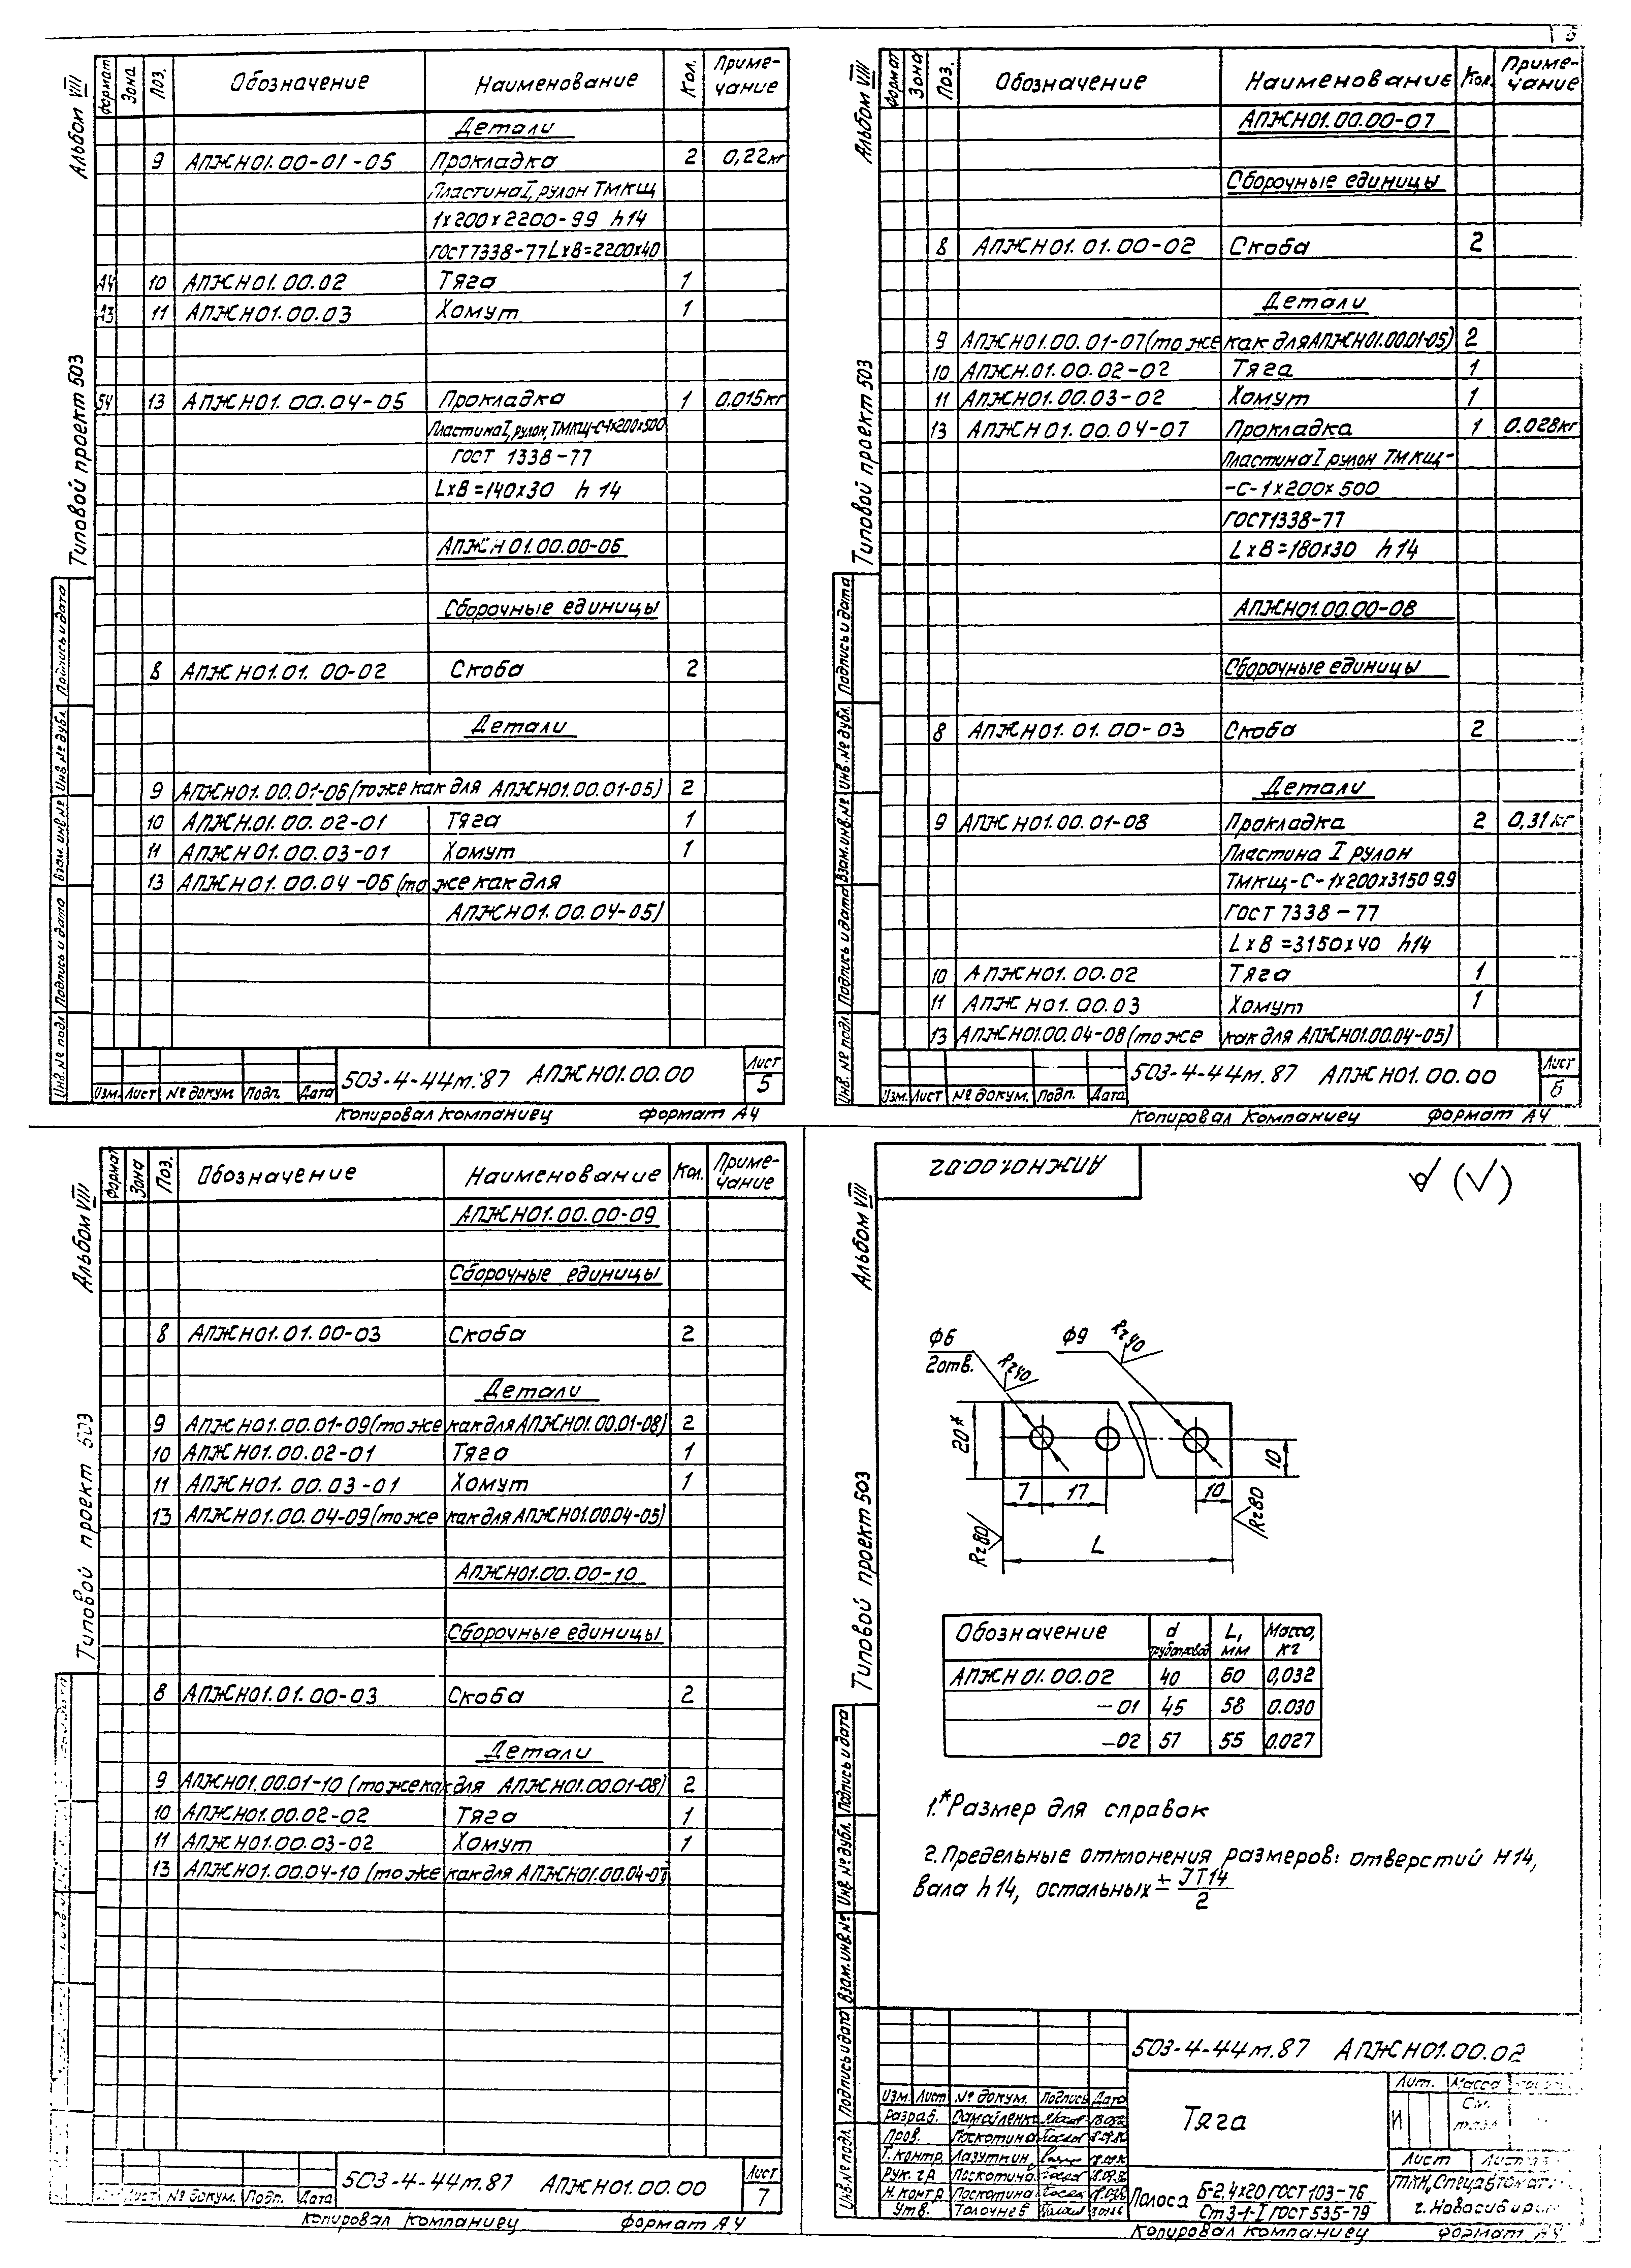 5
Альбом VIII
Типовой проект 503
Формат Зона Поз. Обозначение Наименование Кол. Примечание
Детали
9 АПЖН01.00-01-05 Прокладка 2 0,22кг
Пластина I, рулон ТМКЩ
1х200х2200-99 h14
ГОСТ 7338-77 LхВ=2200х40
А4 10 АПЖН01.00.02 Тяга 1
А3 11 АПЖН01.00.03 Хомут 1
54 13 АПЖН01.00.04-05 Прокладка 1 0.015кг
Пластина I, рулон, ТМКЩ-С-1х200х500
ГОСТ 1338-77
LхВ=140х30 h14
АПЖН01.00.00-06
Сборочные единицы
8 АПЖН01.01.00-02 Скоба 2
Детали
9 АПЖН01.00.01-06 (то же как для АПЖН01.00.01-05) 2
10 АПЖН.01.00.02-01 Тяга 1
11 АПЖН01.00.03-01 Хомут 1
13 АПЖН01.00.04-06 (то же как для
АПЖН01.00.04-05)
Инв.№ подл. Подпись и дата Взам. инв № Инв № дубл. Подпись и дата
Изм. Лист № докум. Подп. Дата
503-4-44м.87 АПЖН01.00.00
Лист 5
Копировал Компаниец Формат А4
Альбом VIII
Типовой проект 503
Формат Зона Поз. Обозначение Наименование Кол. Примечание
АПЖН01.00.00-07
Сборочные единицы
8 АПЖН01.01.00-02 Скоба 2
Детали
9 АПЖН01.00.01-07 (то же как для АПЖН01.00.01-05) 2
10 АПЖН.01.00.02-02 Тяга 1
11 АПЖН01.00.03-02 Хомут 1
13 АПЖН01.00.04-07 Прокладка 1 0.028кг
Пластина I рулон ТМКЩ-
-С-1х200х500
ГОСТ 1338-77
LхВ=180х30 h14
АПЖН01.00.00-08
Сборочные единицы
8 АПЖН01.01.00-03 Скоба 2
Детали
9 АПЖН01.00.01-08 Прокладка 2 0,31кг
Пластина I рулон
ТМКЩ-С-1х200х3150 9.9
ГОСТ 7338-77
LхВ=3150х40 h14
10 АПЖН01.00.02 Тяга 1
11 АПЖН01.00.03 Хомут 1
13 АПЖН01.00.04-08 (то же как для АПЖН01.00.04-05)
Инв. № подл. Подпись и дата Взам.инв.№ Инв.№ дубл. Подпись и дата
Изм. Лист № докум. Подп. Дата
503-4-44м.87 АПЖН01.00.00
Лист 6
Копировал Компаниец Формат А4
Альбом VIII
Типовой проект 503
Формат Зона Поз. Обозначение Наименование Кол. Примечание
АПЖН01.00.00-09
Сборочные единицы
8 АПЖН01.01.00-03 Скоба 2
Детали
9 АПЖН01.00.01-09 (то же как для АПЖН01.00.01-08) 2
10 АПЖН01.00.02-01 Тяга 1
11 АПЖН01.00.03-01 Хомут 1
13 АПЖН01.00.04-09 (то же как для АПЖН01.00.04-05)
АПЖН01.00.00-10
Сборочные единицы
8 АПЖН01.01.00-03 Скоба 2
Детали
9 АПЖН01.00.01-10 (то же как для АПЖН01.00.01-08) 2
10 АПЖН01.00.02-02 Тяга 1
11 АПЖН01.00.03-02 Хомут 1
13 АПЖН01.00.04-10 (то же как для АПЖН01.00.04-07
Лист № докум. Подп. Дата
503-4-44м.87 АПЖН01.00.00
Лист 7
Копировал Компаниец Формат А4
Альбом VIII
Типовой проект 503
АПЖН01.00.02
(√)
Φ6
2отв.
Rz40
Φ9
Rz40
20*
10
7 17 10
Rz80
Rz80
L
Обозначение d трубопровод L, мм Масса, кг
АПЖН01.00.02 40 60 0,032
-01 45 58 0.030
-02 57 55 0.027
1.*Размер для справок
2. Предельные отклонения размеров: отверстий Н14,
вала h14, остальных ± JT14/2
Инв.№ подл. Подпись и дата Взам.инв.№ Инв № дубл. Подпись и дата
503-4-44м.87 АПЖН01.00.02
Изм. Лист № докум. Подпись Дата
Разраб. Самойленко
Пров. Поскотина
Т.контр. Лазуткин
Рук. гр Поскотина
Н.контр Поскотина
Утв. Толочнев
Тяга
Лит. Масса
И См. табл
Лист
Полоса Б-2,4х20 ГОСТ 103-76
Ст3-1-I ГОСТ 535-79
г.Новосибирск
Копировал Компаниец Формат А4